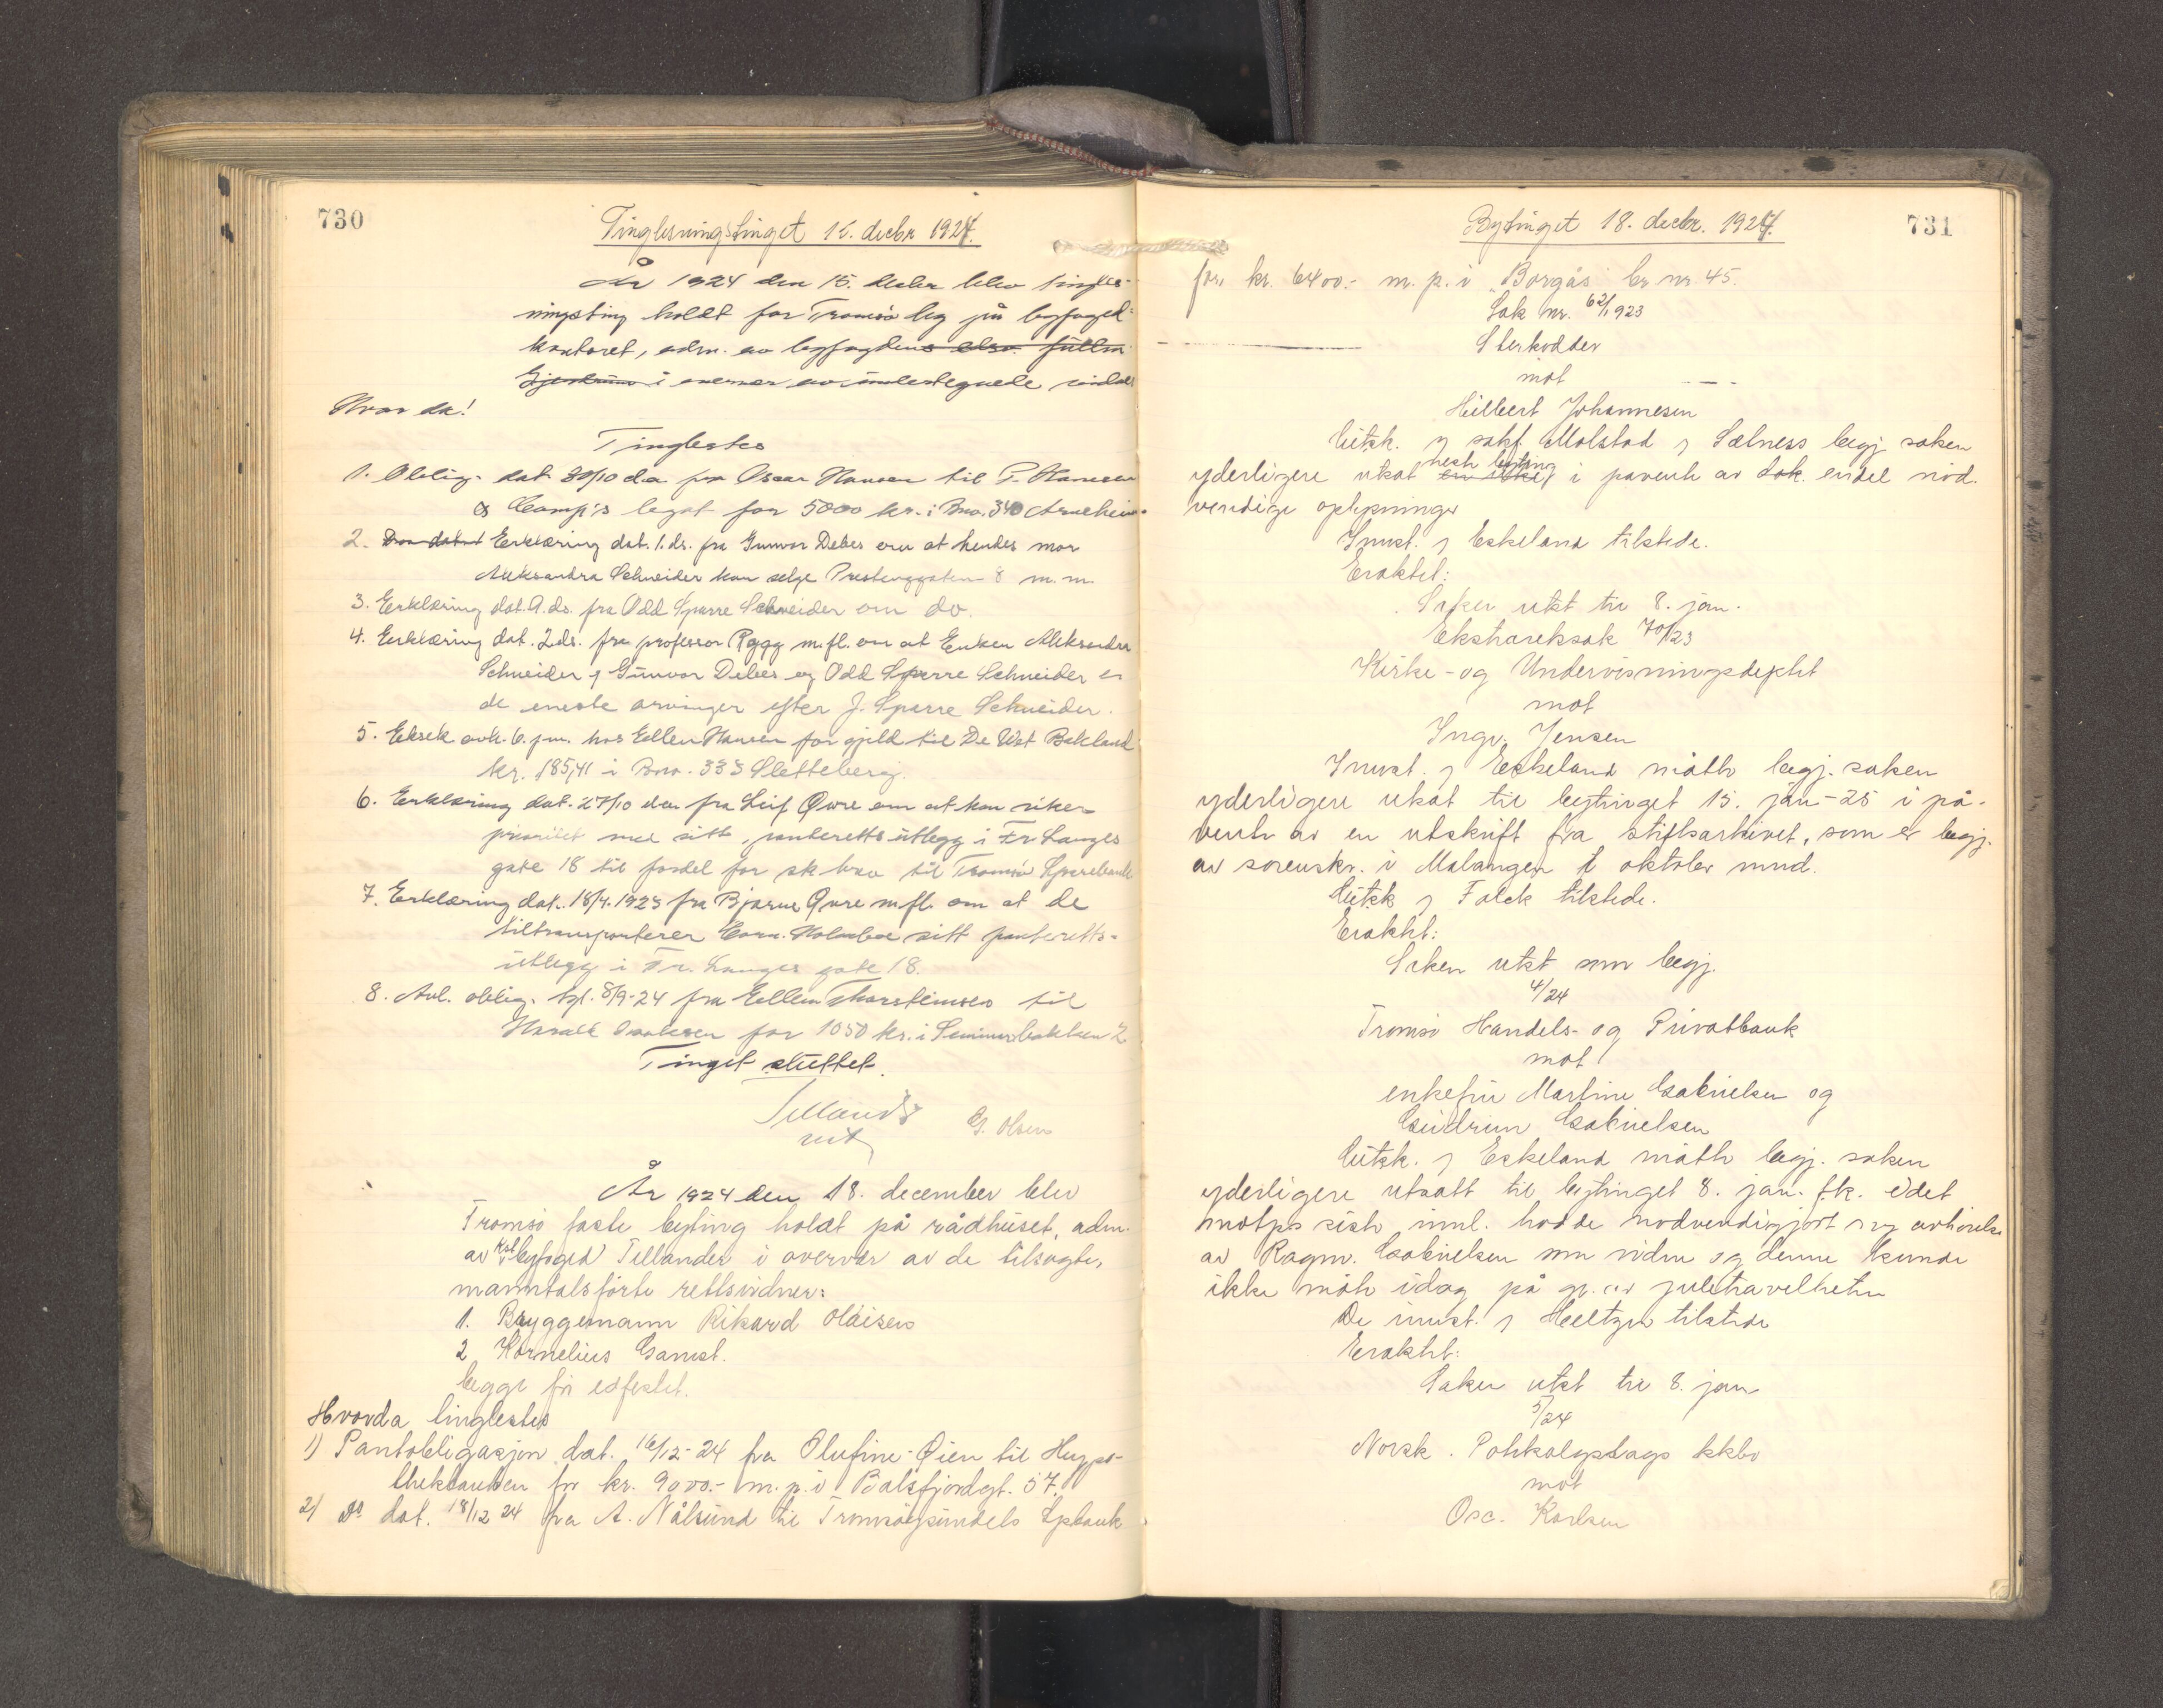 730
Tinglesningstinget 15. decbr 1924.
År 1924 den 15. decbr blev tingles-
ningsting holdt for Tromsö by på byfoged-
kontoret, adm. av byfogdens
i overvær av undertegnede vidne
Hvor da!
Tinglestes
1. Oblig. dat. 30/10 d.a. fra Oscar Hansen til P. Hansen
& Comp's legat for 5000 kr. i Bno. 340 Arneheim
2. Erklæring dat. 1. ds. fra Gunvor Debes om at hendes mor
Aleksandra Schneider kan selge Prestenggaten 8 m.m.
3. Erklæring dat. 9. ds. fra Odd Sparre Schneider om do.
4. Erklæring dat. 2 ds. fra professor Rygg m.fl. om at Enken Aleksandra
Schneider og Gunvor Debes og Odd Sparre Schneider er
de eneste arvinger efter J. Sparre Schneider.
5. Eksek. avh. 6. hos Ellen Hansen for gjeld til De Wet Bakland
kr. 185,41 i Bno. 333 Sletteberg.
6. Erklæring dat. 27/10 d.a. fra Leif Qvre om at han viker
prioritet med sitt panteretts utlegg i Fr. Langes
gate 18 til fordel for til Tromsö Sparebank
7. Erklæring dat. 18/4. 1923 fra Bjarne Qvre m.fl. om at de
tiltransporterer Conr. Holmboe sitt panteretts-
utlegg i Fr. Langes gate 18.
8. Avl. oblig. tgl. 8/9-24 fra Ellen Thorsteinsen til
Harald Isaksen for 1050 kr. i Seminarbakken 2
Tinget sluttet.
Tellander
G. Olsen
År 1924 den 18. december blev
Tromsö faste byting holdt på rådhuset, adm.
av kst byfoged Tellander i overvær av de tilsagte,
manntalsförte rettsvidner:
1. Bryggemann Rikard Olaisen
2 Kornelius Gamst.
begge för edfestet.
Hvorda tinglestes
1) Pantobligasjon dat. 16/12-24 fra Olufine Øien til Hypo-
thekbanken for kr. 9000.- m.p. i Balsfjordgt. 57.
2) Do dat. 18/12 24 fra A. Nålsund til Tromsöysundets Spbank
Bytinget 18. decbr. 1924.
731
for kr. 6400.- m.p. i "Borgås" br. nr. 45.
Sak nr. 62/1923
Sterkodder
mot
Hilbert Johannesen
Citsk. v sakf. Molstad v Sælness begj. saken
yderligere utsat nesh byting i påvente av endel nöd-
vendige oplysninger
Innst. v Eskeland tilstede.
Eraktet:
Saken utst til 8. jan.
Ekstrareksak 70/23
Kirke- og Undervisningsdeptet
mot
Ingv. Jensen
Innst. v Eskeland mötte begj. saken
yderligere utsat til bytinget 15. jan-25 i på-
vente av en utskrift fra stiftsarkivet, som er begj.
av sorenskr. i Malangen i oktober mnd.
Citsk v Falck tilstede.
Eraktet:
Saken utst som begj.
4/24
Tromsö Handels- og Privatbank
mot
enkefru Martine Gabrielsen og
Gudrun Gabrielsen
Citsk. v Eskeland mötte begj. saken
yderligere utsatt til bytinget 8. jan. f.k. idet
motps siste innl. hadde nödvendiggjort avhörelse
av Ragnv. Gabrielsen som vidne og denne kunde
ikke möte idag på gr. av juletravelheten
De innst. v Heltzen tilstede
Eraktet:
Saken utst til 8. jan
5/24
Norsk
mot
Osc. Karlsen